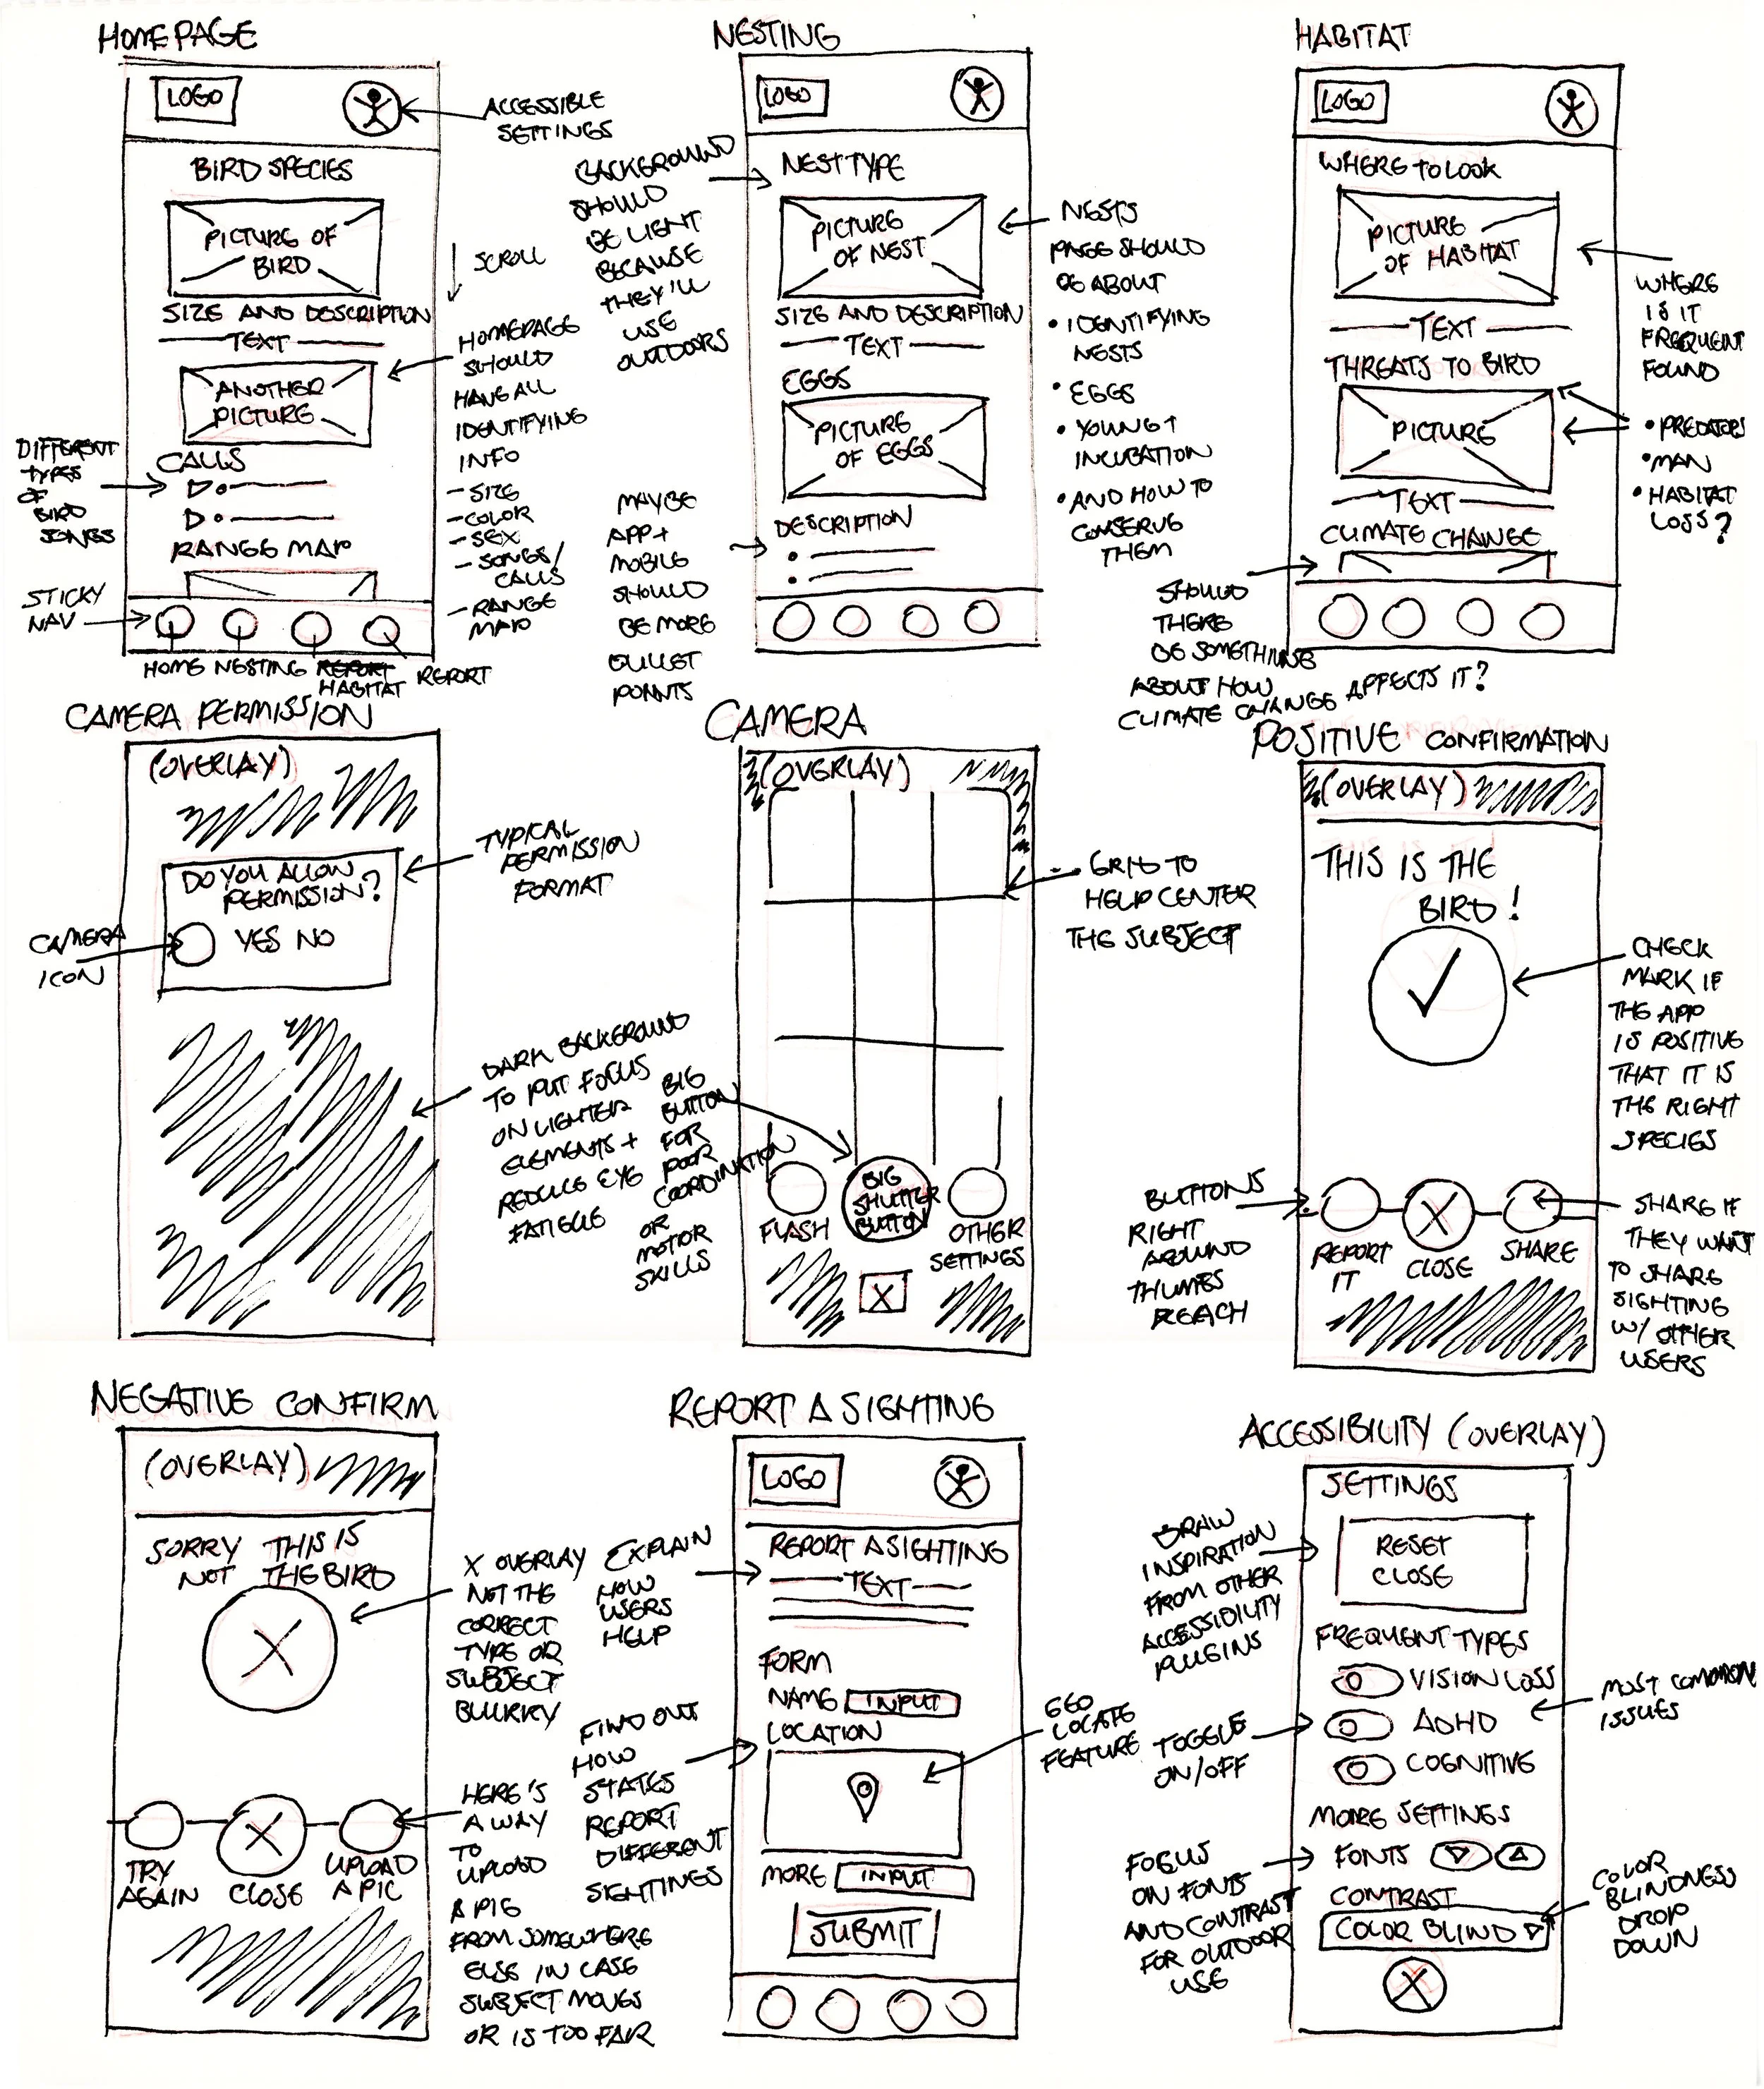 HOMEPAGE
LOGO
ACCESSIBLE
SETTINGS
BIRD SPECIES
PICTURE OF
BIRD
SCROLL
SIZE AND DESCRIPTION
TEXT
ANOTHER
PICTURE
HOMEPAGE
SHOULD
HAVE ALL
IDENTIFYING
INFO
- SIZE
- COLOR
- SEX
- SONGS/
CALLS
- RANGE
MAP
DIFFERENT
TYPES
OF
BIRD
SONGS
CALLS
RANGE MAP
STICKY
NAV
HOME NESTING REPORT REPORT
HABITAT
NESTING
LOGO
BACKGROUND
SHOULD
BE LIGHT
BECAUSE
THEY'LL
USE
OUTDOORS
NEST TYPE
PICTURE
OF NEST
SIZE AND DESCRIPTION
TEXT
EGGS
PICTURE
OF EGGS
DESCRIPTION
MAYBE
APP +
MOBILE
SHOULD
BE MORE
BULLET
POINTS
NESTS
PAGE SHOULD
BE ABOUT
• IDENTIFYING
NESTS
• EGGS
• YOUNG +
INCUBATION
• AND HOW TO
CONSERVE
THEM
HABITAT
LOGO
WHERE TO LOOK
PICTURE
OF HABITAT
TEXT
WHERE
IS IT
FREQUENT
FOUND
THREATS TO BIRD
PICTURE
TEXT
• PREDATORS
• MAN
• HABITAT
LOSS?
CLIMATE CHANGE
SHOULD
THERE
BE SOMETHING
ABOUT HOW
CLIMATE CHANGE AFFECTS IT?
CAMERA PERMISSION
(OVERLAY)
DO YOU ALLOW
PERMISSION?
YES NO
CAMERA
ICON
TYPICAL
PERMISSION
FORMAT
DARK BACKGROUND
TO PUT FOCUS
ON LIGHTER
ELEMENTS +
REDUCE EYE
FATIGUE
CAMERA
(OVERLAY)
GRID TO
HELP CENTER
THE SUBJECT
BIG
BUTTON
FOR
POOR
COORDINATION
OR
MOTOR
SKILLS
FLASH
BIG
SHUTTER
BUTTON
OTHER
SETTINGS
X
POSITIVE CONFIRMATION
(OVERLAY)
THIS IS THE
BIRD!
CHECK
MARK IF
THE APP
IS POSITIVE
THAT IT IS
THE RIGHT
SPECIES
BUTTONS
RIGHT
AROUND
THUMBS
REACH
REPORT
IT
X
CLOSE
SHARE
SHARE IF
THEY WANT
TO SHARE
SIGHTING
W/ OTHER
USERS
NEGATIVE CONFIRM
(OVERLAY)
SORRY THIS IS
NOT THE BIRD
X
X OVERLAY
NOT THE
CORRECT
TYPE OR
SUBJECT
BLURRY
TRY
AGAIN
X
CLOSE
UPLOAD
A PIC
HERE'S
A WAY
TO
UPLOAD
A PIC
FROM SOMEWHERE
ELSE IN CASE
SUBJECT MOVES
OR IS TOO FAR
REPORT A SIGHTING
LOGO
REPORT A SIGHTING
TEXT
EXPLAIN
HOW
USERS
HELP
FORM
NAME INPUT
LOCATION
FIND OUT
HOW
STATES
REPORT
DIFFERENT
SIGHTINGS
GEO
LOCATE
FEATURE
MORE INPUT
SUBMIT
ACCESSIBILITY (OVERLAY)
SETTINGS
RESET
CLOSE
DRAW
INSPIRATION
FROM OTHER
ACCESSIBILITY
PLUGINS
FREQUENT TYPES
VISION LOSS
ADHD
COGNITIVE
MOST COMMON
ISSUES
TOGGLE
ON/OFF
MORE SETTINGS
FONTS
FOCUS
ON FONTS
AND CONTRAST
FOR OUTDOOR
USE
CONTRAST
COLOR BLIND
COLOR
BLINDNESS
DROP
DOWN
X